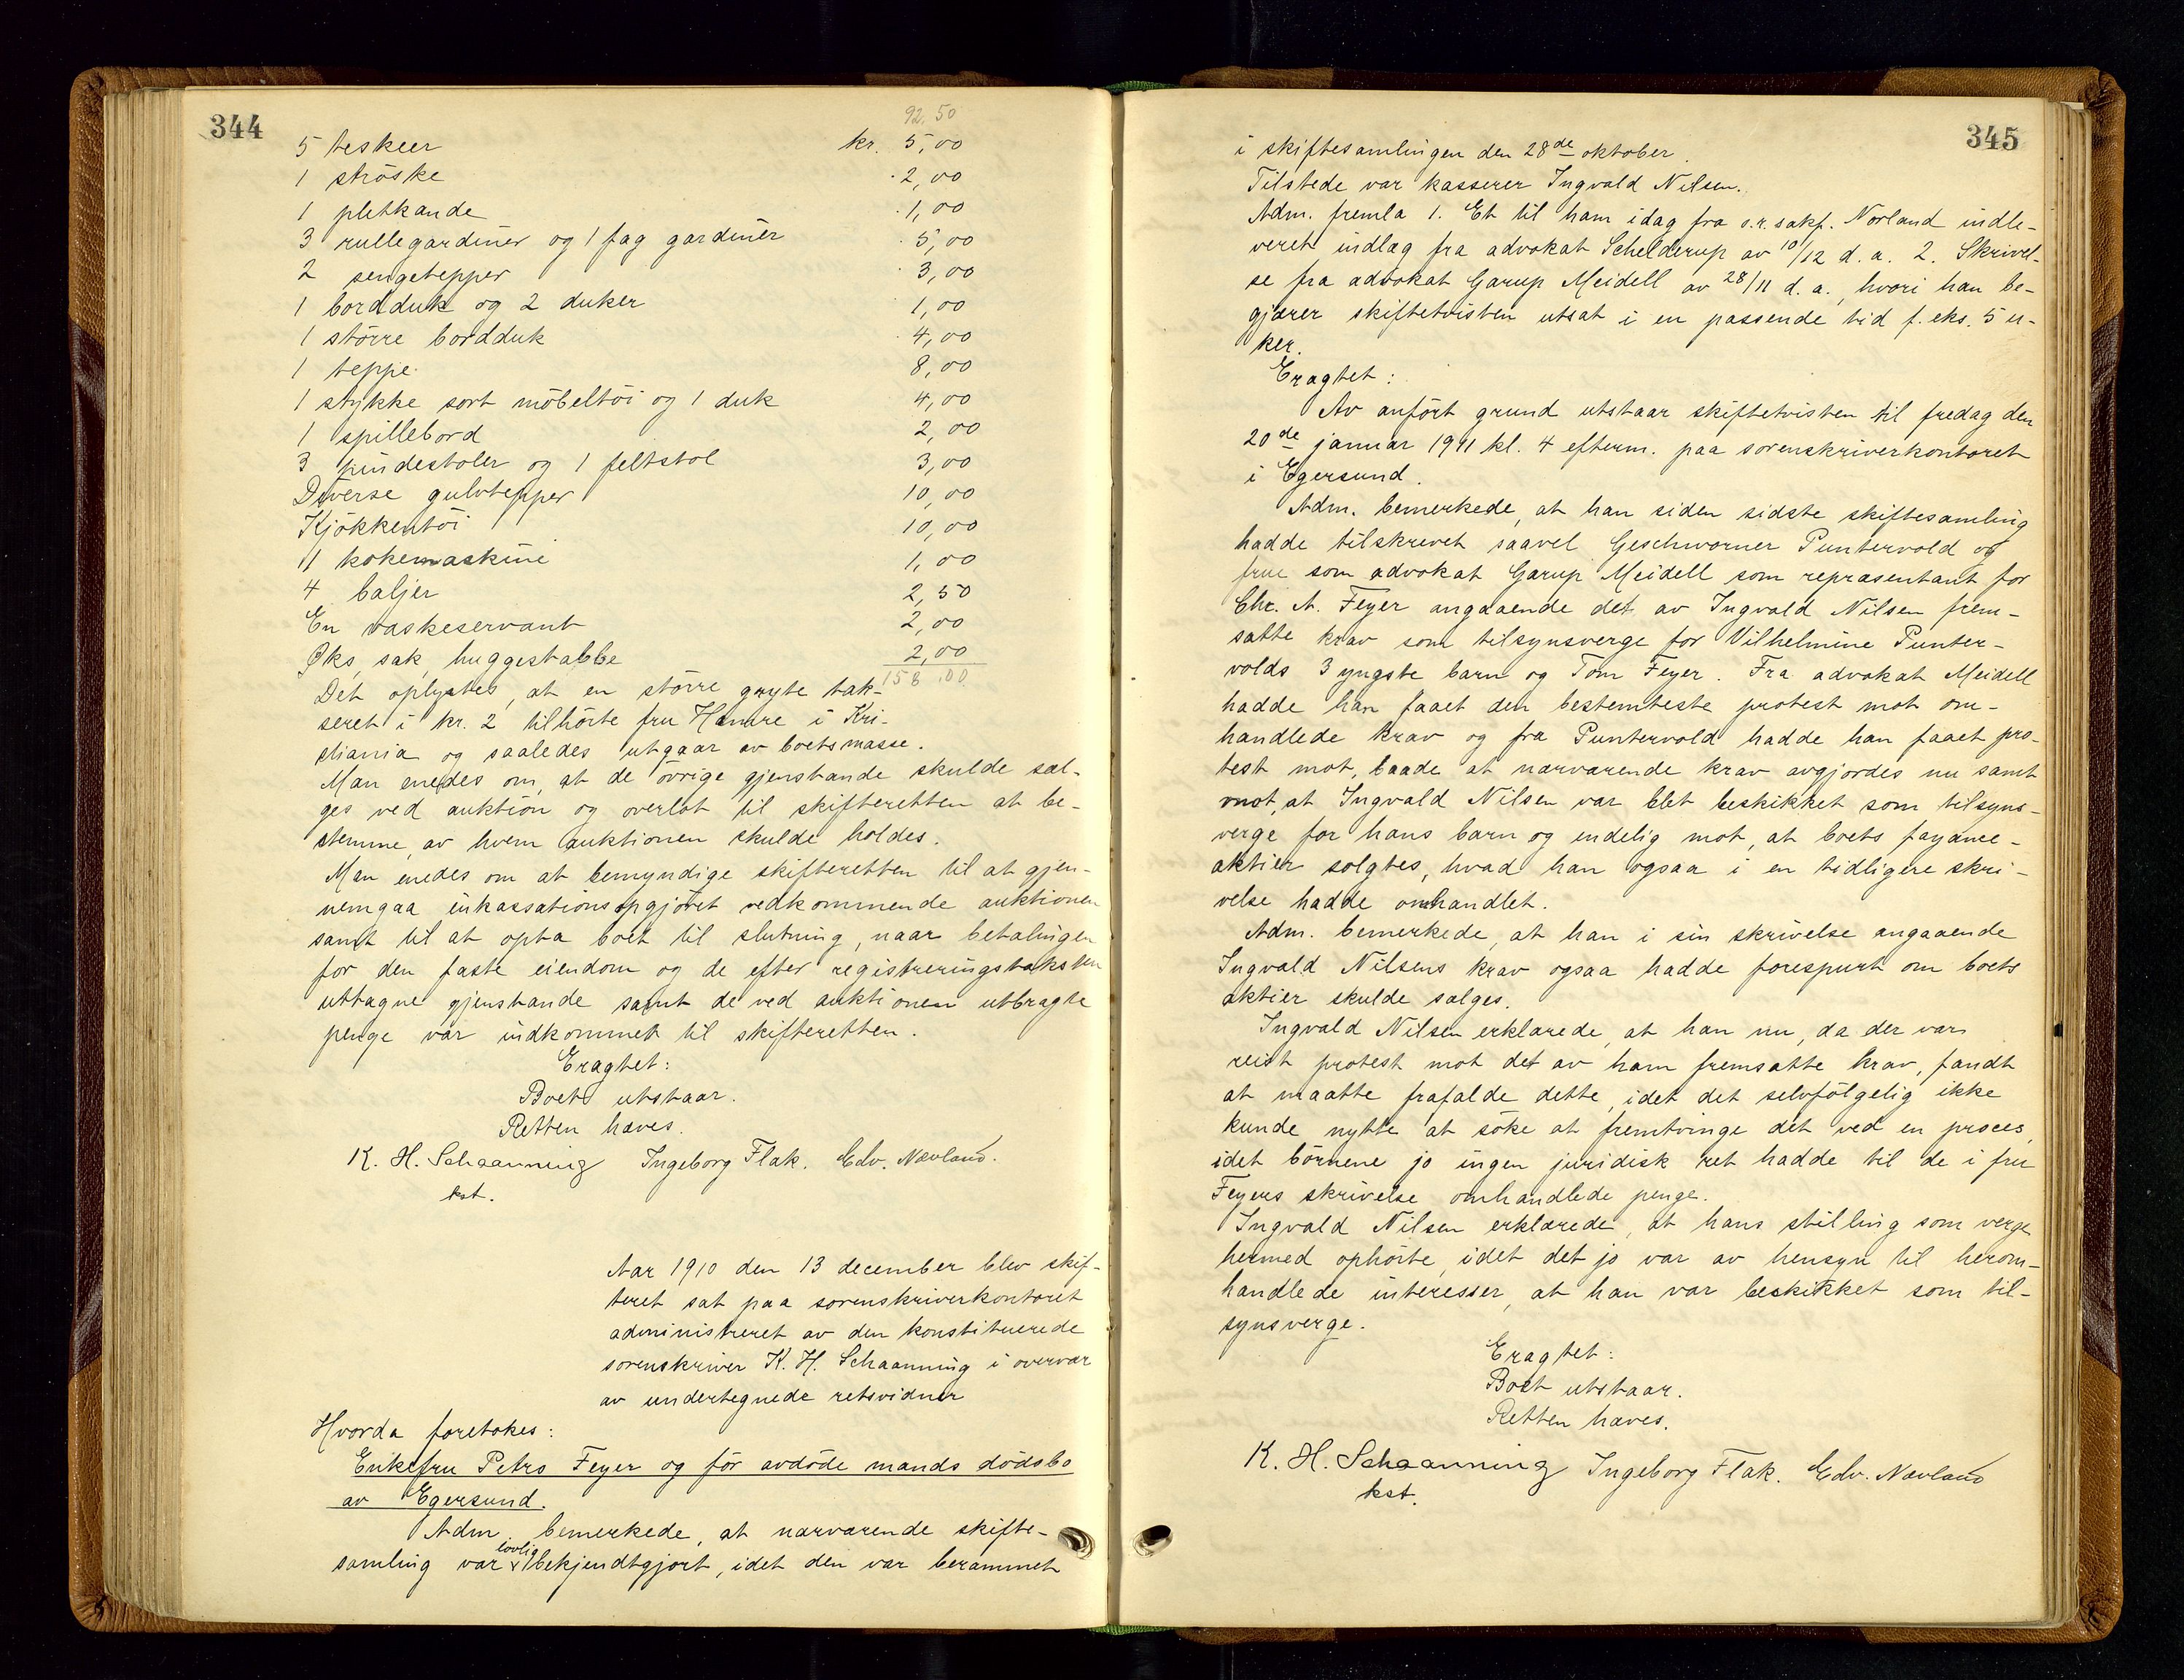 344
92.50
5 teskeer kr. 5,00
1 ströske 2,00
1 pletkande 1,00
3 rullegardiner og 1 fag gardiner 5,00
2 sengetepper 3,00
1 bordduk og 2 duker 1,00
1 större bordduk 4,00
1 teppe 8,00
1 stykke sort möbeltöi og 1 duk 4,00
1 spillebord 2,00
3 pindestoler og 1 feltstol 3,00
Diverse gulvtepper 10,00
Kjökkentöi 10,00
1 kokemaskine 1,00
4 baljer 2,50
En vaskeservant 2,00
Øks, sak, huggestabbe 2,00
158.00
Det oplystes, at en större gryte tak-
seret i kr. 2 tilhörte fru Hamre i Kri-
stiania og saaledes utgaar av boets masse.
Man enedes om, at de övrige gjenstande skulde sæl-
ges ved auktion og overlot til skifteretten at be-
stemme, av hvem auktionen skulde holdes.
Man enedes om at bemyndige skifteretten til at gjen-
nemgaa inkassationsopgjöret vedkommende auktionen
samt til at opta boet til slutning, naar betalingen
for den faste eiendom og de efter registreringstaksten
uttagne gjenstande samt de ved auktionen utbragte
penge var indkommet til skifteretten.
Eragtet:
Boet utstaar.
Retten hæves.
K. H. Schaanning Ingeborg Flak. Edv. Nævland.
kst.
Aar 1910 den 13 december blev skif-
teret sat paa sorenskriverkontoret
administreret av den konstituerede
sorenskriver K. H. Schaanning i overvær
av undertegnede retsvidner
Hvorda foretokes:
Enkefru Petra Feyer og för avdöde mands dödsbo
av Egersund.
Adm. bemerkede, at nærværende skifte-
samling var lovlig bekjendtgjort, idet den var berammet
345
i skiftesamlingen den 28de oktober.
Tilstede var kasserer Ingvald Nilsen.
Adm. fremla 1. Et til ham idag fra o.r.sakf. Norland indle-
veret indlæg fra advokat Schelderup av 10/12 d. a. 2. Skrivel-
se fra advokat Garup Meidell av 28/11 d. a., hvori han be-
gjærer skiftetvisten utsat i en passende tid f. eks. 5 u-
ker.
Eragtet:
Av anfört grund utstaar skiftetvisten til fredag den
20de januar 1911 kl. 4 efterm. paa sorenskriverkontoret
i Egersund.
Adm. bemerkede, at han siden sidste skiftesamling
hadde tilskrevet saavel Geschworner Puntervold og
frue som advokat Garup Meidell som repræsentant for
Chr. A. Feyer angaaende det av Ingvald Nilsen frem-
satte krav som tilsynsverge for Vilhelmine Punter-
volds 3 yngste barn og Tom Feyer. Fra advokat Meidell
hadde han faaet den bestemteste protest mot om-
handlede krav og fra Puntervold hadde han faaet pro-
test mot, baade at nærværende krav avgjordes nu samt
mot, at Ingvald Nilsen var blet beskikket som tilsyns-
verge for hans barn og endelig mot, at boets fayance-
aktier solgtes, hvad han ogsaa i en tidligere skri-
velse hadde omhandlet.
Adm. bemerkede, at han i sin skrivelse angaaende
Ingvald Nilsens krav ogsaa hadde forespurt om boets
aktier skulde sælges.
Ingvald Nilsen erklærede, at han nu, da der var
reist protest mot det av ham fremsatte krav, fandt
at maatte frafalde dette, idet det selvfölgelig ikke
kunde nytte at söke at fremtvinge det ved en proces,
idet börnene jo ingen juridisk ret hadde til de i fru
Feyers skrivelse omhandlede penge.
Ingvald Nilsen erklærede, at hans stilling som verge
hermed ophörte, idet det jo var av hensyn til herom-
handlede interesser, at han var beskikket som til-
synsverge.
Eragtet:
Boet utstaar.
Retten hæves.
K. H. Schaanning Ingeborg Flak. Edv. Nævland
kst.